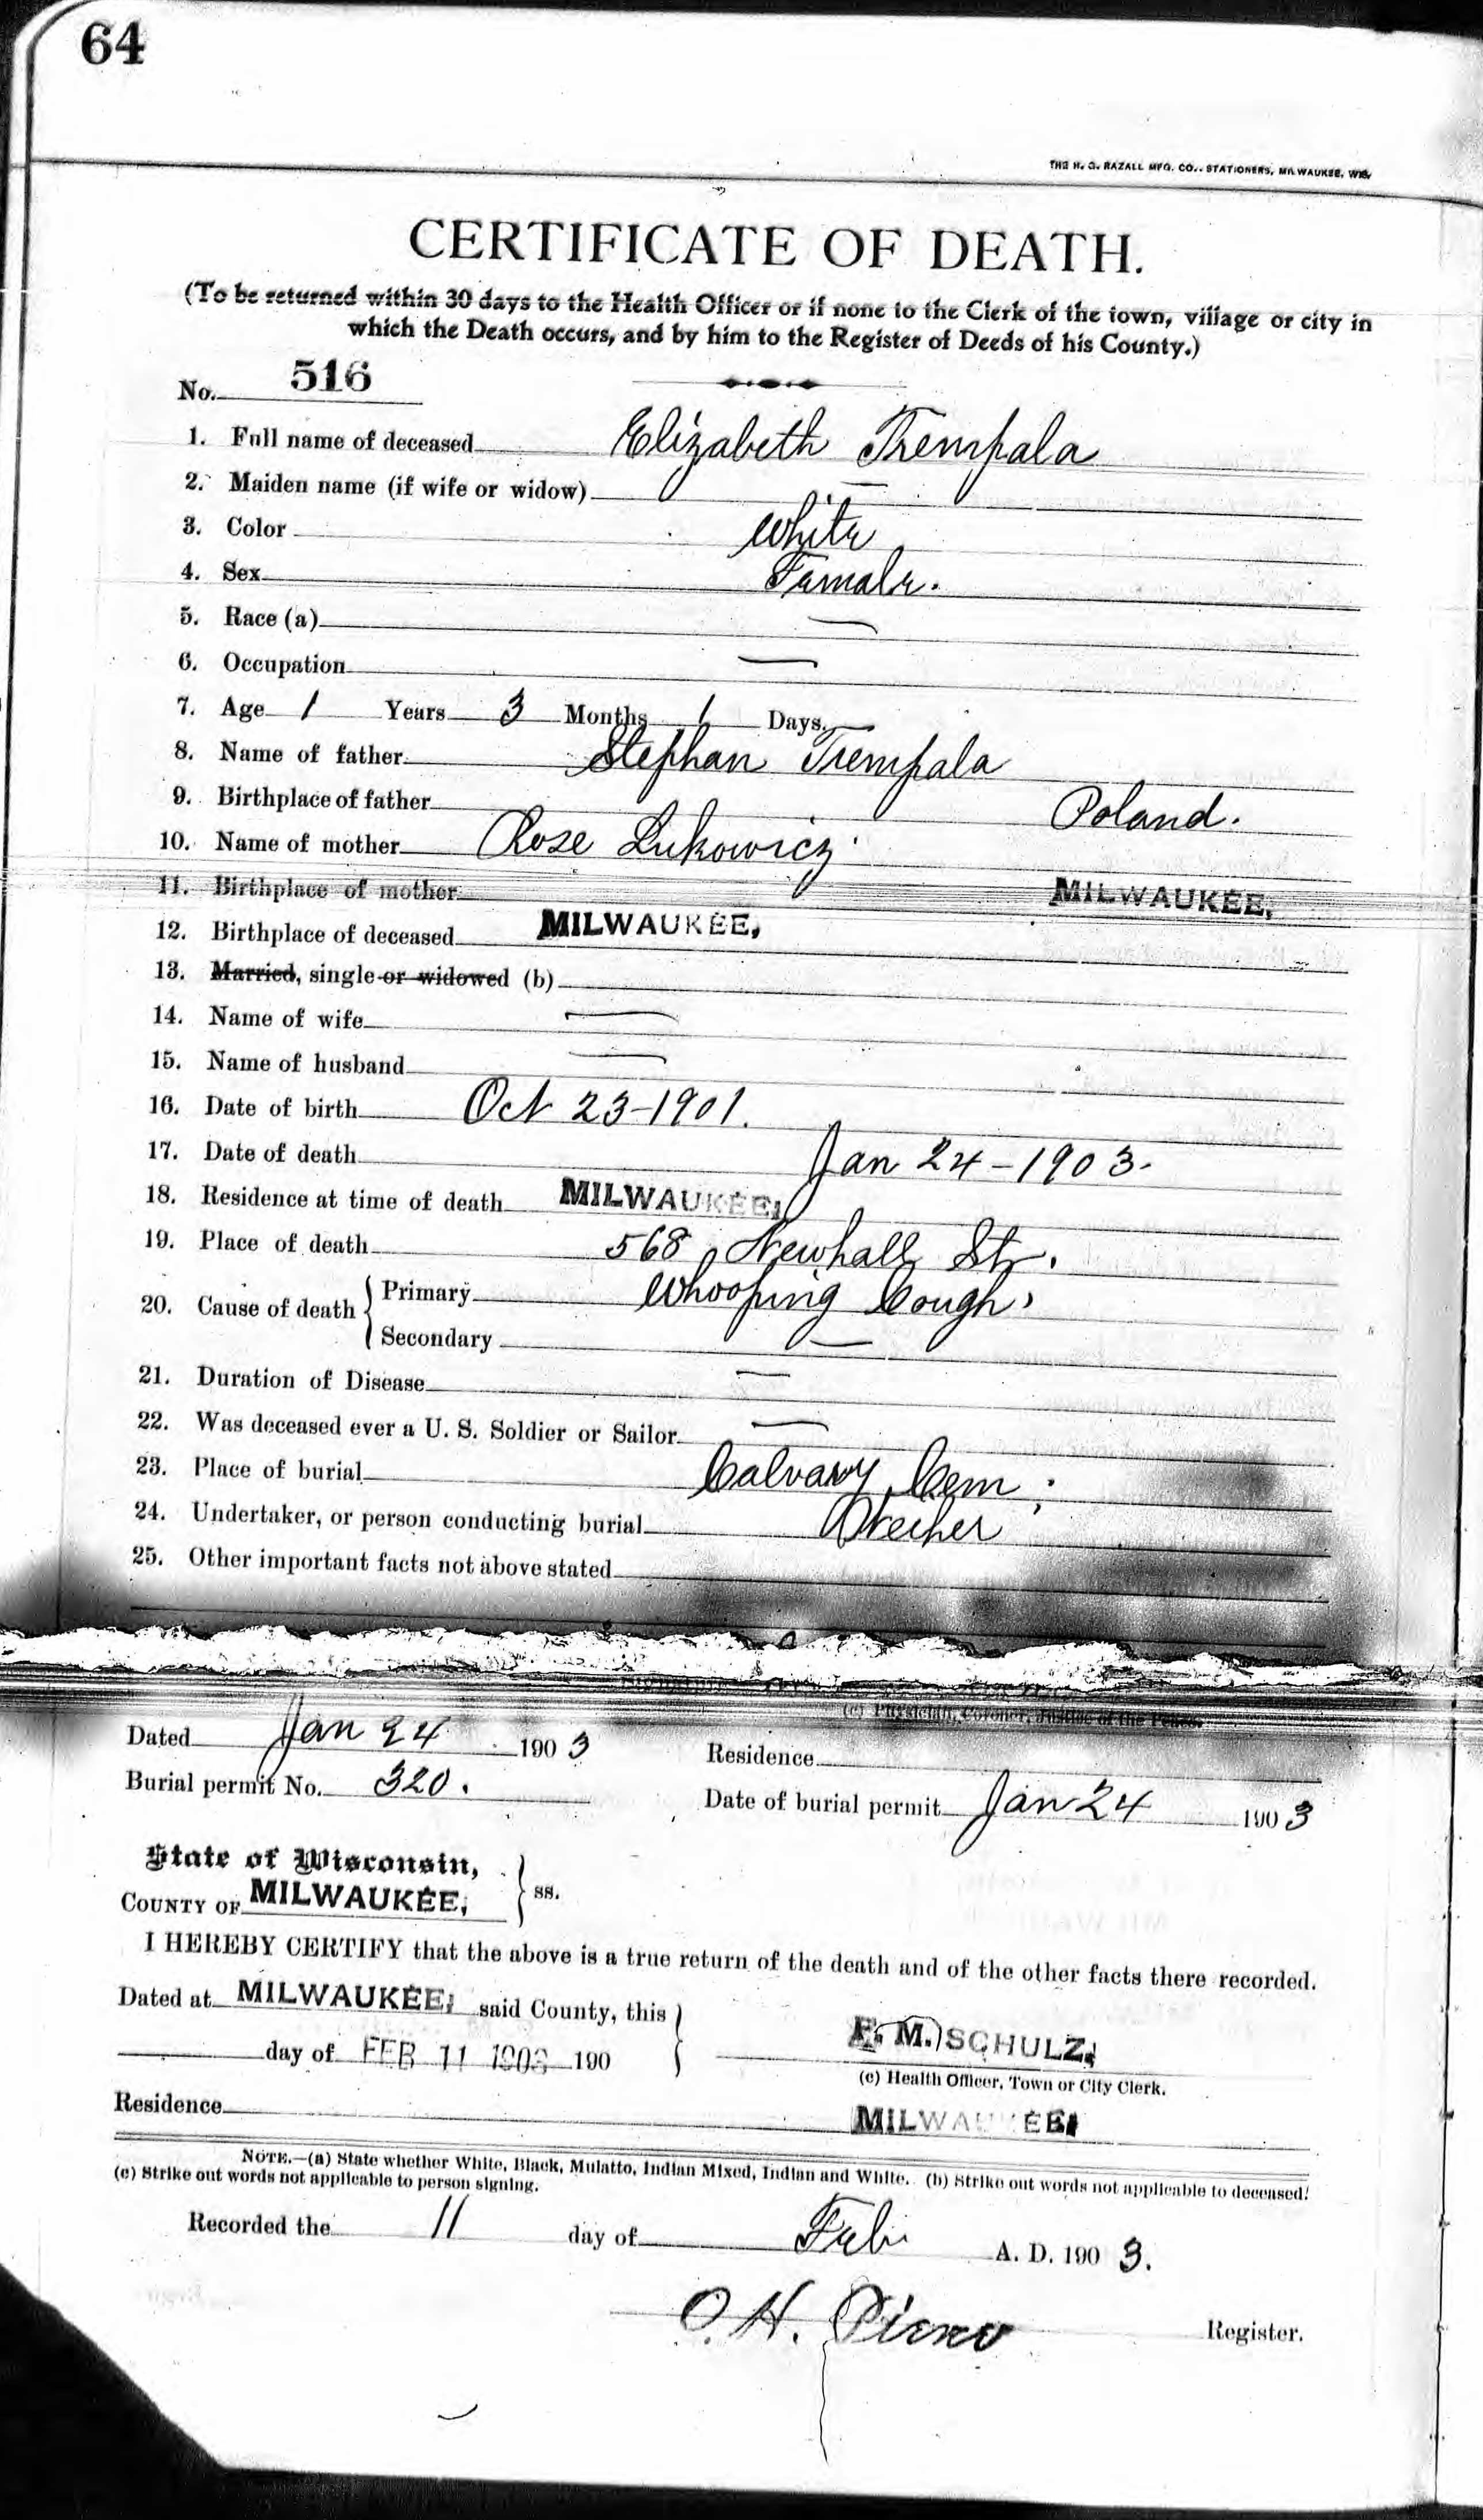 64
THE H. G. RAZALL MFG. CO., STATIONERS, MILWAUKEE, WIS.
CERTIFICATE OF DEATH.
(To be returned within 30 days to the Health Officer or if none to the Clerk of the town, village or city in
which the Death occurs, and by him to the Register of Deeds of his County.)
No. 516
1. Full name of deceased Elizabeth Trempala
2. Maiden name (if wife or widow) —
3. Color White
4. Sex Female.
5. Race (a) —
6. Occupation —
7. Age 1 Years 3 Months 1 Days.
8. Name of father Stephan Trempala
9. Birthplace of father Poland.
10. Name of mother Rose Lukowicz
11. Birthplace of mother MILWAUKEE,
12. Birthplace of deceased MILWAUKEE,
13. Married, single or widowed (b)
14. Name of wife —
15. Name of husband —
16. Date of birth Oct 23-1901.
17. Date of death Jan 24-1903.
18. Residence at time of death MILWAUKEE,
19. Place of death 568 Newhall St.
20. Cause of death { Primary Whooping Cough,
Secondary —
21. Duration of Disease —
22. Was deceased ever a U. S. Soldier or Sailor —
23. Place of burial Calvary Cem.
24. Undertaker, or person conducting burial
25. Other important facts not above stated
(c) Physician, Coroner, Justice of the Peace.
Dated Jan 24 1903 Residence
Burial permit No. 320. Date of burial permit Jan 24 1903
State of Wisconsin,
COUNTY OF MILWAUKEE, } ss.
I HEREBY CERTIFY that the above is a true return of the death and of the other facts there recorded.
Dated at MILWAUKEE, said County, this
day of FEB 11 1903 190
F. M. SCHULZ,
(c) Health Officer, Town or City Clerk.
Residence MILWAUKEE,
NOTE.—(a) State whether White, Black, Mulatto, Indian Mixed, Indian and White. (b) Strike out words not applicable to deceased.
(c) Strike out words not applicable to person signing.
Recorded the 11 day of Feb. A. D. 1903.
O. H. Pierce Register.